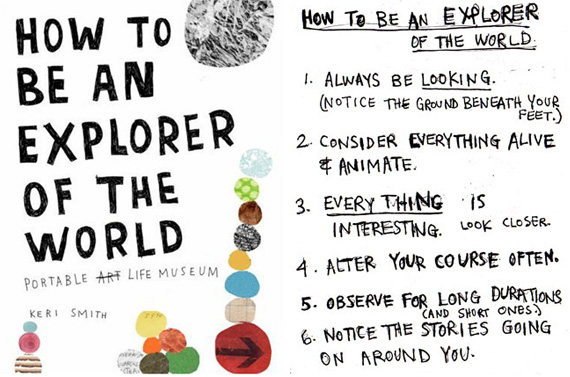 HOW TO
BE AN
EXPLORER
OF THE
WORLD
PORTABLE ART LIFE MUSEUM
KERI SMITH
HOW TO BE AN EXPLORER
OF THE WORLD.
1. ALWAYS BE LOOKING.
(NOTICE THE GROUND BENEATH YOUR
FEET.)
2. CONSIDER EVERYTHING ALIVE
& ANIMATE.
3. EVERYTHING IS
INTERESTING. LOOK CLOSER.
4. ALTER YOUR COURSE OFTEN.
5. OBSERVE FOR LONG DURATIONS
(AND SHORT ONES.)
6. NOTICE THE STORIES GOING
ON AROUND YOU.